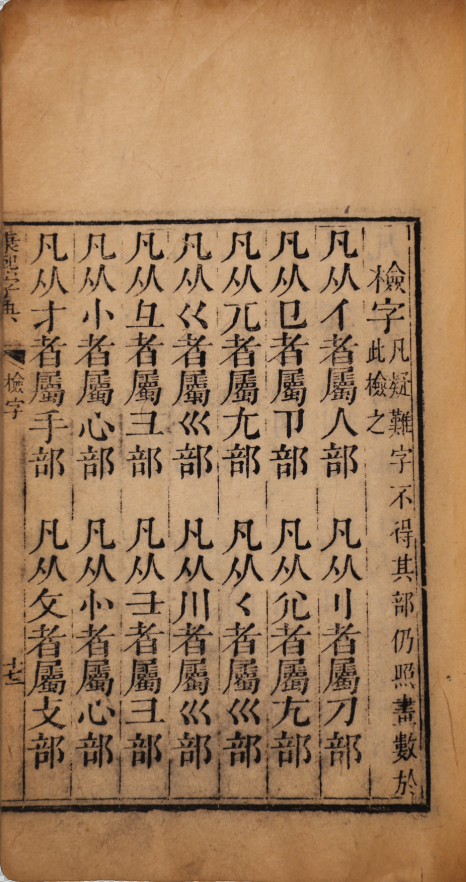 檢字 凡疑難字不得其部仍照畫數於
此檢之
凡从亻者屬人部 凡从刂者屬刀部
凡从㔾者屬卩部 凡从尣者屬尢部
凡从兀者屬尢部 凡从𡿨者屬巛部
凡从巜者屬巛部 凡从川者屬巛部
凡从彑者屬彐部 凡从彐者屬彐部
凡从小者屬心部 凡从⺗者屬心部
凡从扌者屬手部 凡从攵者屬攴部
康熙字典 檢字